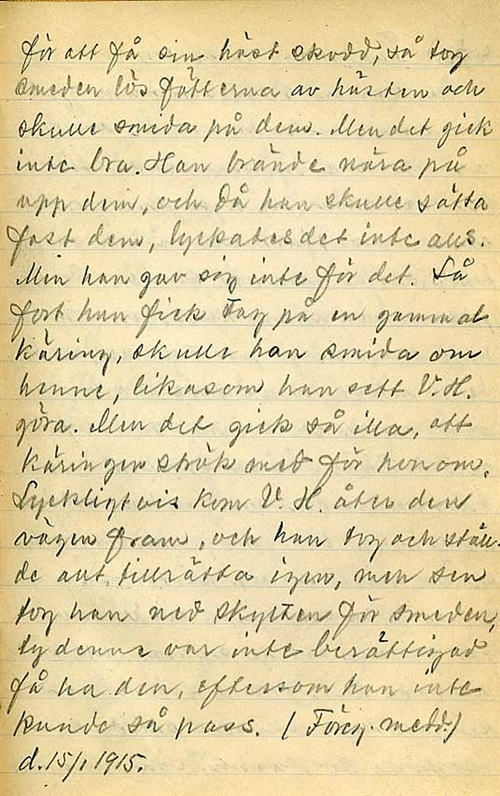 för att få sin häst skodd, så tog
smeden lös fötterna av hästen och
skulle smida på dem. Men det gick
inte bra. Han brände nära på
upp dem, och då han skulle sätta
fast dem, lyckades det inte alls.
Men han gav sig inte för det. Så
fort han fick tag på en gammal
käring, skulle han smida om
henne, likasom han sett V. H.
göra. Men det gick så illa, att
käringen strök med för honom.
Lyckligtvis kom V. H. åter den
vägen fram, och han tog och ställ-
de allt tillrätta igen, men sen
tog han ned skylten för smeden,
ty denne var inte berättigad
få ha den, eftersom han inte
kunde så pass. (Föreg. medd.)
d. 15/1 1915.